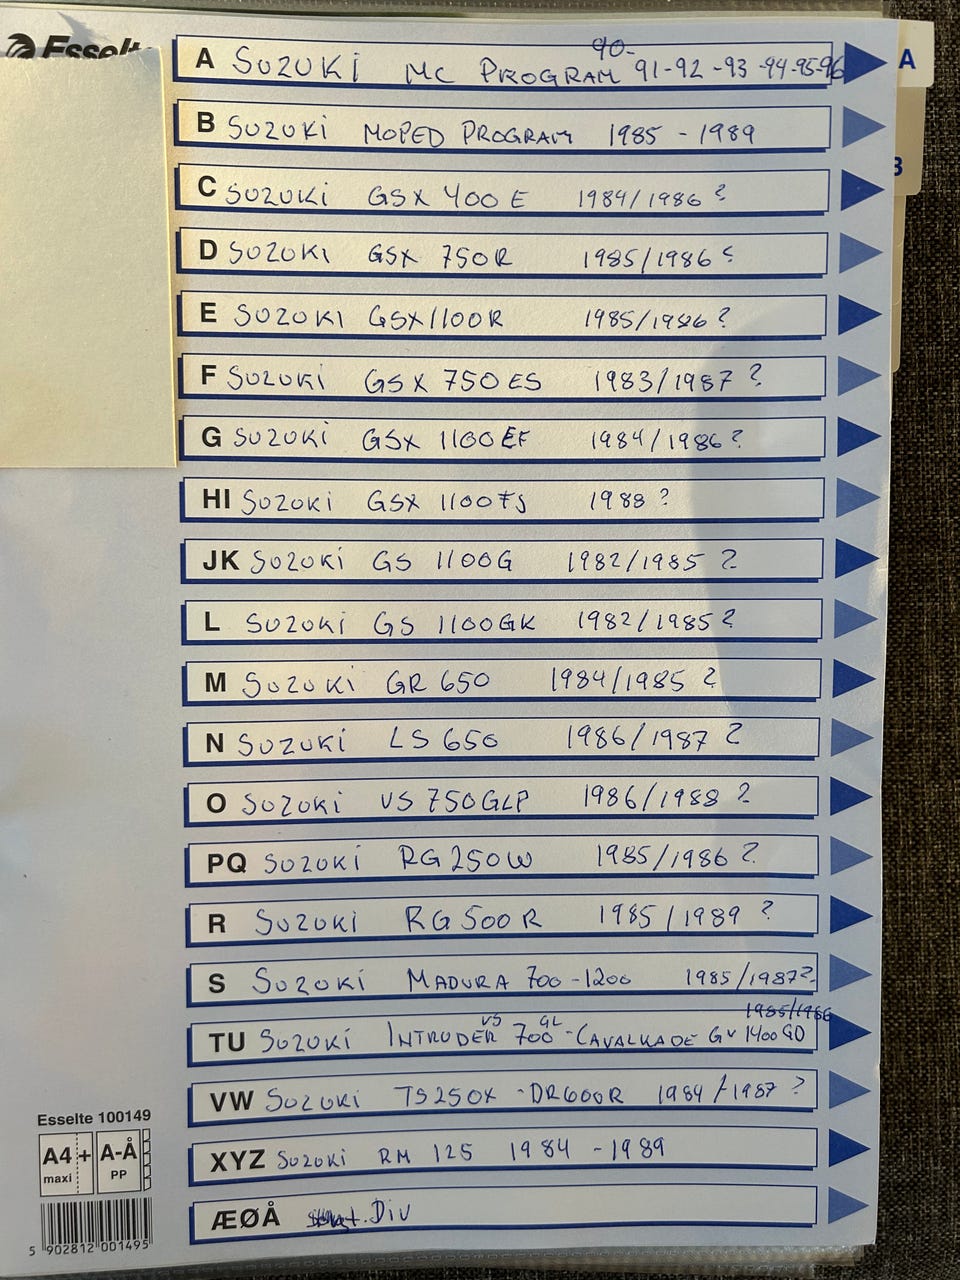 Esselte
A SUZUKI MC PROGRAM 90-91-92-93-94-95-96
A
B SUZUKI MOPED PROGRAM 1985 - 1989
B
C SUZUKI GSX 400 E 1984/1986 ?
D SUZUKI GSX 750R 1985/1986 ?
E SUZUKI GSX1100R 1985/1986 ?
F SUZUKI GSX 750 ES 1983/1987 ?
G SUZUKI GSX 1100 EF 1984/1986 ?
HI SUZUKI GSX 1100FJ 1988 ?
JK SUZUKI GS 1100G 1982/1985 ?
L SUZUKI GS 1100GK 1982/1985 ?
M SUZUKI GR 650 1984/1985 ?
N SUZUKI LS 650 1986/1987 ?
O SUZUKI VS 750GLP 1986/1988 ?
PQ SUZUKI RG 250W 1985/1986 ?
R SUZUKI RG 500 R 1985/1989 ?
S SUZUKI MADURA 700 - 1200 1985/1987?
TU SUZUKI INTRUDER VS 700 GL - CAVALKADE GV 1400 GD 1985/1986
VW SUZUKI TS250X - DR600R 1984/1987 ?
XYZ SUZUKI RM 125 1984 - 1989
ÆØÅ Div
Esselte 100149
A4 + A-Å
maxi PP
5 902812 001495